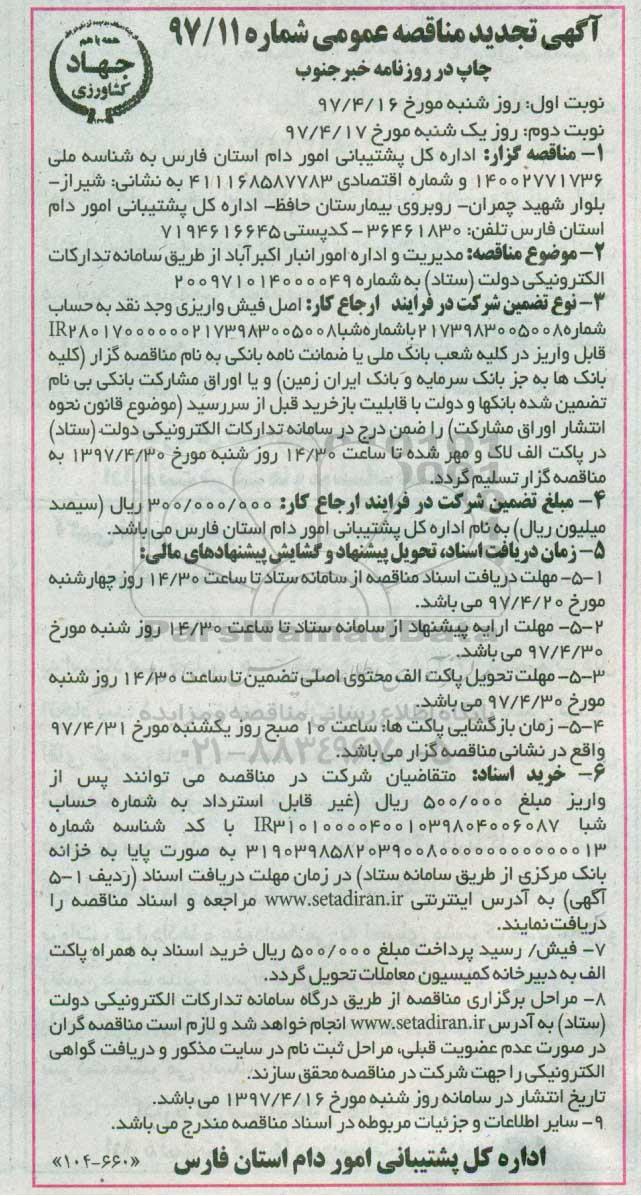 آگهی تجدید مناقصه عمومی شماره ۹۷/۱۱
چاپ در روزنامه خبرجنوب
همه با هم
جهاد
کشاورزی
نوبت اول: روز شنبه مورخ ۹۷/۴/۱۶
نوبت دوم: روز یک شنبه مورخ ۹۷/۴/۱۷
۱- مناقصه گزار: اداره کل پشتیبانی امور دام استان فارس به شناسه ملی
۱۴۰۰۲۷۷۱۷۳۶ و شماره اقتصادی ۴۱۱۱۶۸۵۸۷۷۸۳ به نشانی: شیراز-
بلوار شهید چمران- روبروی بیمارستان حافظ- اداره کل پشتیبانی امور دام
استان فارس تلفن: ۳۶۴۶۱۸۳۰ - کدپستی ۷۱۹۴۶۱۶۶۴۵
۲- موضوع مناقصه: مدیریت و اداره امور انبار اکبرآباد از طریق سامانه تدارکات
الکترونیکی دولت (ستاد) به شماره ۲۰۰۹۷۱۰۱۴۰۰۰۰۴۹
۳- نوع تضمین شرکت در فرآیند ارجاع کار: اصل فیش واریزی وجد نقد به حساب
شماره ۲۱۷۳۹۸۳۰۰۵۰۰۸ با شماره شبا IR۲۸۰۱۷۰۰۰۰۰۰۰۲۱۷۳۹۸۳۰۰۵۰۰۸
قابل واریز در کلیه شعب بانک ملی یا ضمانت نامه بانکی به نام مناقصه گزار (کلیه
بانک ها به جز بانک سرمایه و بانک ایران زمین) و یا اوراق مشارکت بانکی بی نام
تضمین شده بانکها و دولت با قابلیت بازخرید قبل از سررسید (موضوع قانون نحوه
انتشار اوراق مشارکت) را ضمن درج در سامانه تدارکات الکترونیکی دولت (ستاد)
در پاکت الف لاک و مهر شده تا ساعت ۱۴/۳۰ روز شنبه مورخ ۱۳۹۷/۴/۳۰ به
مناقصه گزار تسلیم گردد.
۴- مبلغ تضمین شرکت در فرایند ارجاع کار: ۳۰۰/۰۰۰/۰۰۰ ریال (سیصد
میلیون ریال) به نام اداره کل پشتیبانی امور دام استان فارس می باشد.
۵- زمان دریافت اسناد، تحویل پیشنهاد و گشایش پیشنهادهای مالی:
۵-۱- مهلت دریافت اسناد مناقصه از سامانه ستاد تا ساعت ۱۴/۳۰ روز چهارشنبه
مورخ ۹۷/۴/۲۰ می باشد.
۵-۲- مهلت ارایه پیشنهاد از سامانه ستاد تا ساعت ۱۴/۳۰ روز شنبه مورخ
۹۷/۴/۳۰ می باشد.
۵-۳- مهلت تحویل پاکت الف محتوی اصلی تضمین تا ساعت ۱۴/۳۰ روز شنبه
مورخ ۹۷/۴/۳۰ می باشد.
۵-۴- زمان بازگشایی پاکت ها: ساعت ۱۰ صبح روز یکشنبه مورخ ۹۷/۴/۳۱
واقع در نشانی مناقصه گزار می باشد.
۶- خرید اسناد: متقاضیان شرکت در مناقصه می توانند پس از
واریز مبلغ ۵۰۰/۰۰۰ ریال (غیر قابل استرداد به شماره حساب
شبا IR۳۱۰۱۰۰۰۰۴۰۰۱۰۳۹۸۰۴۰۰۶۰۸۷ با کد شناسه شماره
۳۱۹۰۳۹۸۵۸۲۰۳۹۰۰۸۰۰۰۰۰۰۰۰۰۰۰۰۱۳ به صورت پایا به خزانه
بانک مرکزی از طریق سامانه ستاد) در زمان مهلت دریافت اسناد (ردیف ۱-۵
آگهی) به آدرس اینترنتی www.setadiran.ir مراجعه و اسناد مناقصه را
دریافت نمایند.
۷- فیش/ رسید پرداخت مبلغ ۵۰۰/۰۰۰ ریال خرید اسناد به همراه پاکت
الف به دبیرخانه کمیسیون معاملات تحویل گردد.
۸- مراحل برگزاری مناقصه از طریق درگاه سامانه تدارکات الکترونیکی دولت
(ستاد) به آدرس www.setadiran.ir انجام خواهد شد و لازم است مناقصه گران
در صورت عدم عضویت قبلی، مراحل ثبت نام در سایت مذکور و دریافت گواهی
الکترونیکی را جهت شرکت در مناقصه محقق سازند.
تاریخ انتشار در سامانه روز شنبه مورخ ۱۳۹۷/۴/۱۶ می باشد.
۹- سایر اطلاعات و جزئیات مربوطه در اسناد مناقصه مندرج می باشد.
اداره کل پشتیبانی امور دام استان فارس
«۱۰۴-۶۶۰»